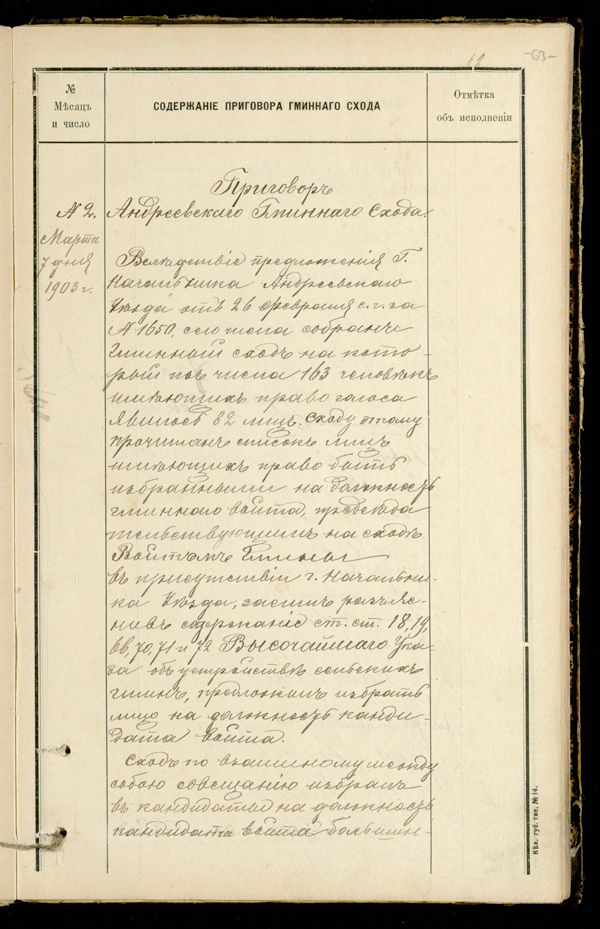 12
-63-
№
Мѣсяцъ
и число
СОДЕРЖАНІЕ ПРИГОВОРА ГМИННАГО СХОДА
Отмѣтка
объ исполненіи
Приговоръ
№ 2. Андреевскаго Гминнаго Схода.
Марта
7 дня
1903 г.
Вслѣдствіе предложенія Г.
Начальника Андреевскаго
Уѣзда отъ 26 февраля с. г. за
№ 1650, сего числа собранъ
гминный сходъ на кото-
рый изъ числа 163 человѣкъ
имѣющихъ право голоса
явилось 82 лицъ. Сходу этому
прочитанъ списокъ лицъ
имѣющихъ право быть
избранными на должность
гминнаго войта, предсѣда
тельствующимъ на сходѣ
Войтомъ Гмины
въ присутствіи г. Начальни-
ка Уѣзда, засимъ разъяс-
нивъ содержаніе ст. ст. 18, 19,
66, 70, 71 и 72 Высочайшаго Ука-
за объ устройствѣ сельскихъ
гминъ, предложилъ избрать
лицо на должность канди-
дата войта.
Сходъ по взаимному между
собою совещанію избралъ
въ кандидаты на должность
кандидата войта большин-
Кѣл. губ. тип. № 14.